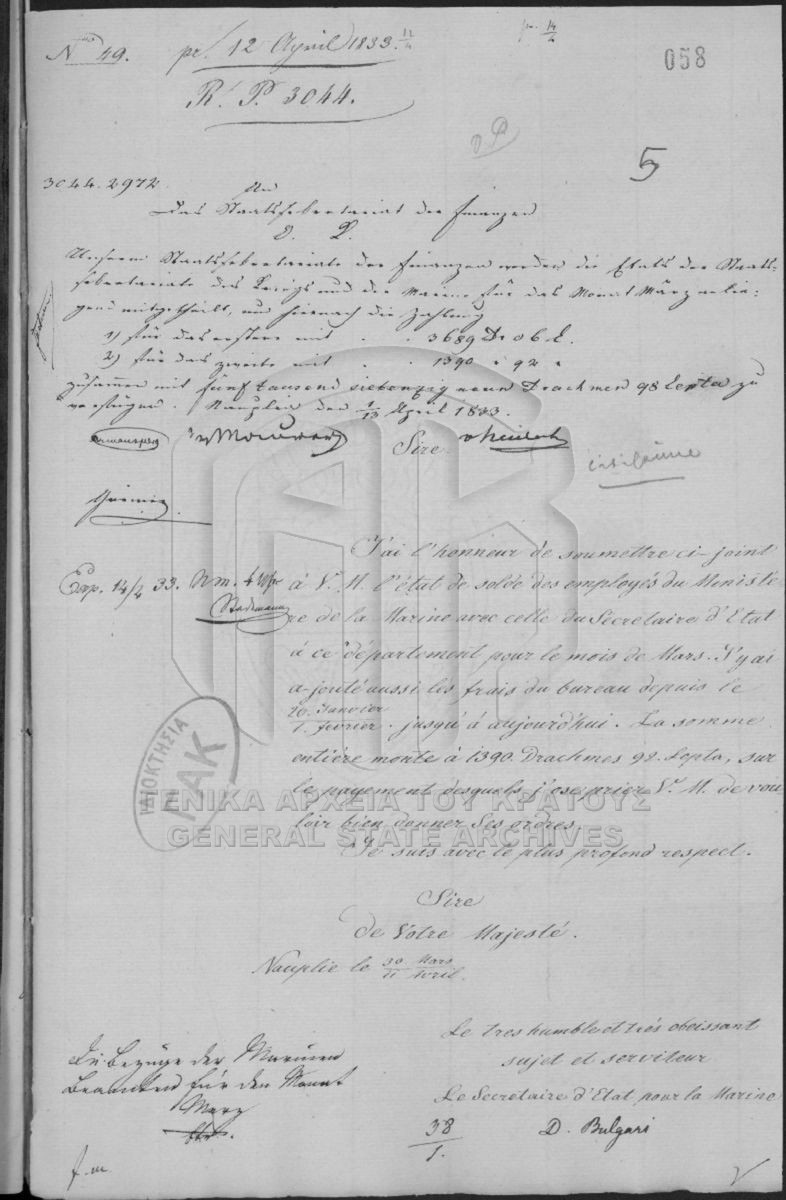 Nro 49. pr. 12 April 1833. 12/4
pr. 14/4
058
R. P. 3044.
5
3044. 2972.
An
Das Staatssekretariat der Finanzen
Unserm Staatssekretariate der Finanzen werden die Etats der Staats-
sekretariate des Kriegs und der Marine für das Monat März
mitgetheilt, um hiernach die Zahlung
1) für das erstere mit . . 3689 Dr 06 L.
2) für das zweite mit . . 1390 " 92 "
zusammen mit fünf tausend siebenzig neun Drachmen 98 Lepta zu
verfügen. Nauplia den 1/13 April 1833.
Armansperg v Maurer v Heideck
Sire
Exp. 14/4 33. Nm. 4 Uhr
Stademann
J'ai l'honneur de soumettre ci-joint
à V. M. l'état de solde des employés du Ministè
re de la Marine avec celle du Secretaire d'Etat
à ce département pour le mois de Mars. J'y ai
a-jouté aussi les frais du bureau depuis le
20. Janvier
1. fevrier. jusqu'à aujourd'hui. La somme
entière monte à 1390. Drachmes 92. Lepta, sur
le payement desquels j'ose prier V. M. de vou
loir bien donner Ses ordres
Je suis avec le plus profond respect.
ΙΔΙΟΚΤΗΣΙΑ
ΓΑΚ
ΓΕΝΙΚΑ ΑΡΧΕΙΑ ΤΟΥ ΚΡΑΤΟΥΣ
GENERAL STATE ARCHIVES
Sire
de Votre Majesté.
Nauplie le 30 Mars / 11 Avril.
Le tres humble et trés obeissant
sujet et serviteur
Le Secretaire d'Etat pour la Marine
D. Bulgari
Die Bezüge der Marine
Beamten für den Monat
März
38
1.